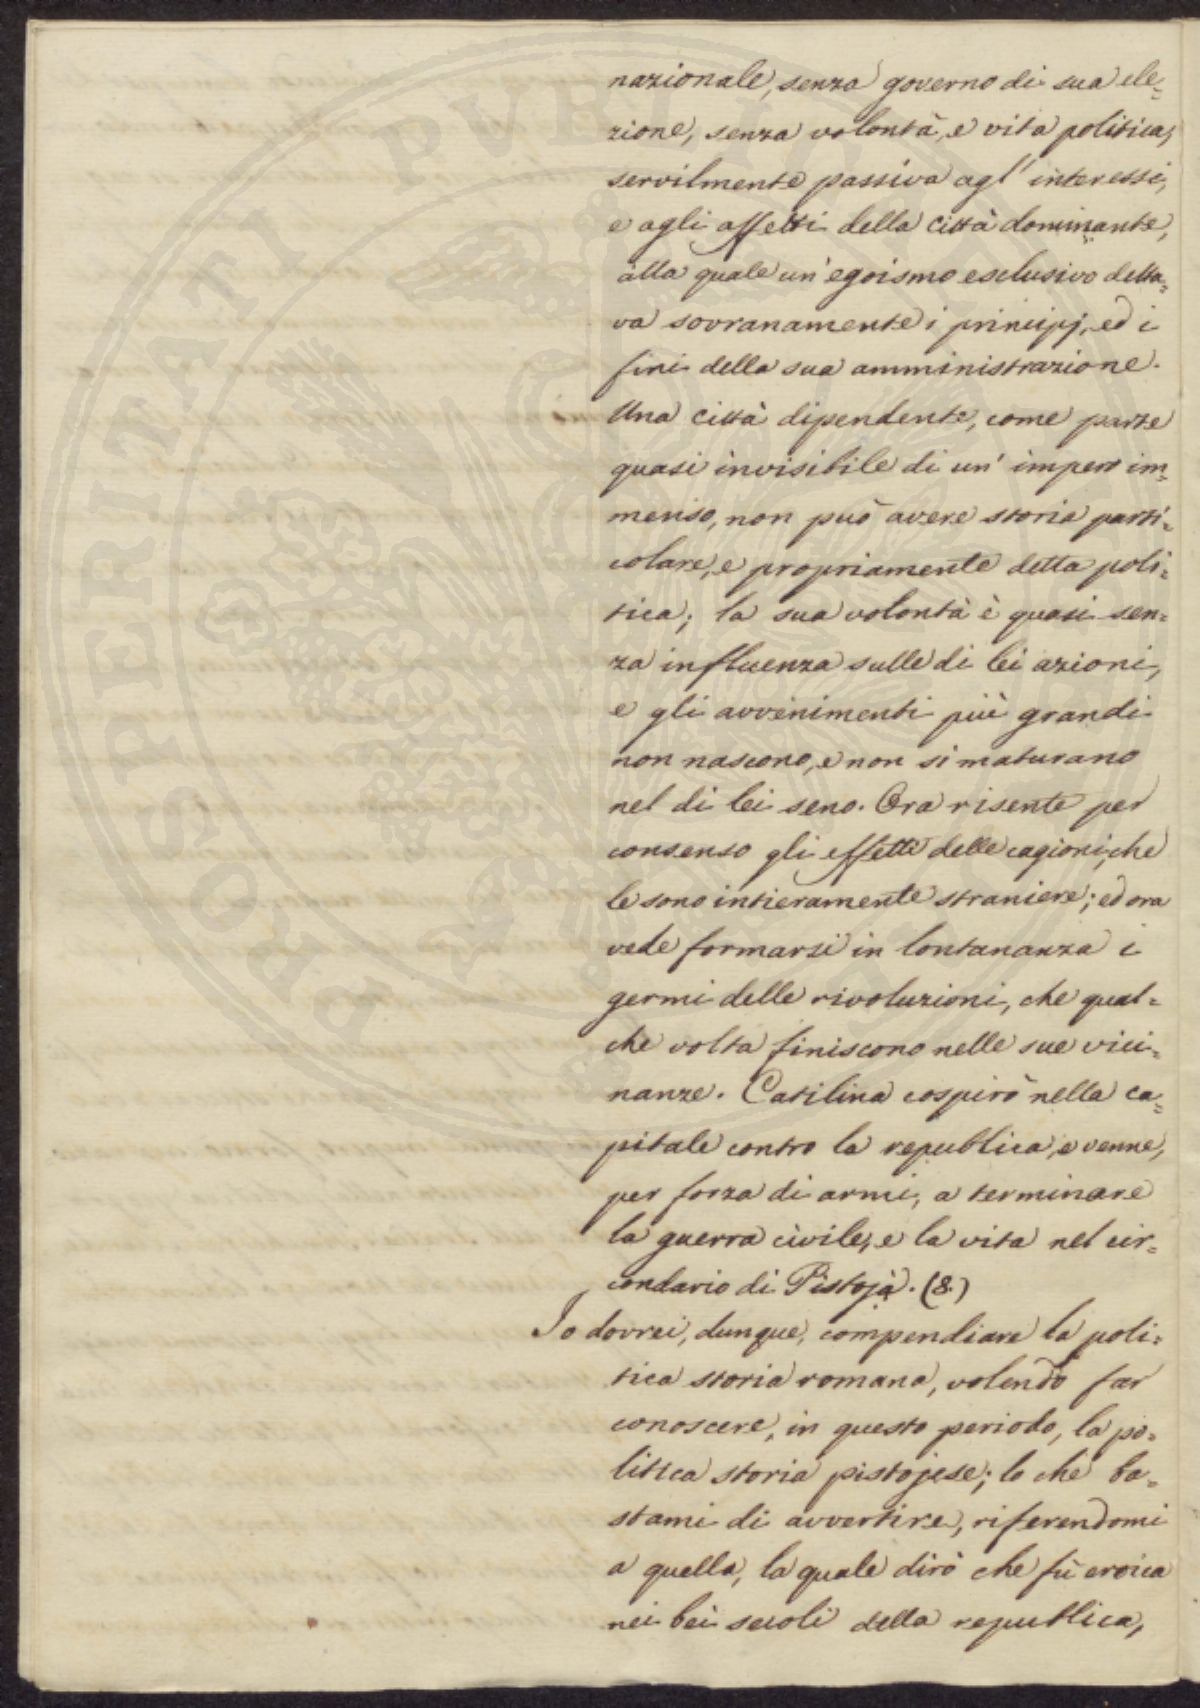 nazionale, senza governo di sua ele=
zione, senza volontà, e vita politica,
servilmente passiva agl' interessi,
e agli affetti della città dominante,
alla quale un' egoismo esclusivo detta=
va sovranamente i principj, ed i
fini della sua amministrazione.
Una città dipendente, come parte
quasi invisibile di un' impero im=
menso, non può avere storia parti=
colare, e propriamente detta poli=
tica; la sua volontà è quasi sen=
za influenza sulle di lei azioni,
e gli avvenimenti più grandi
non nascono, e non si maturano
nel di lei seno. Ora risente per
consenso gli effetti delle cagioni, che
le sono intieramente straniere; ed ora
vede formarsi in lontananza i
germi delle rivoluzioni, che qual=
che volta finiscono nelle sue vici=
nanze. Catilina cospirò nella ca=
pitale contro la republica, e venne,
per forza di armi, a terminare
la guerra civile, e la vita nel cir=
condario di Pistoja. (8.)
Io dovrei, dunque, compendiare la poli=
tica storia romana, volendo far
conoscere, in questo periodo, la po=
litica storia pistojese; lo che ba=
stami di avvertire, riferendomi
a quella, la quale dirò che fù eroica
nei bei secoli della republica,
PROSPERITATI PVBLICAE